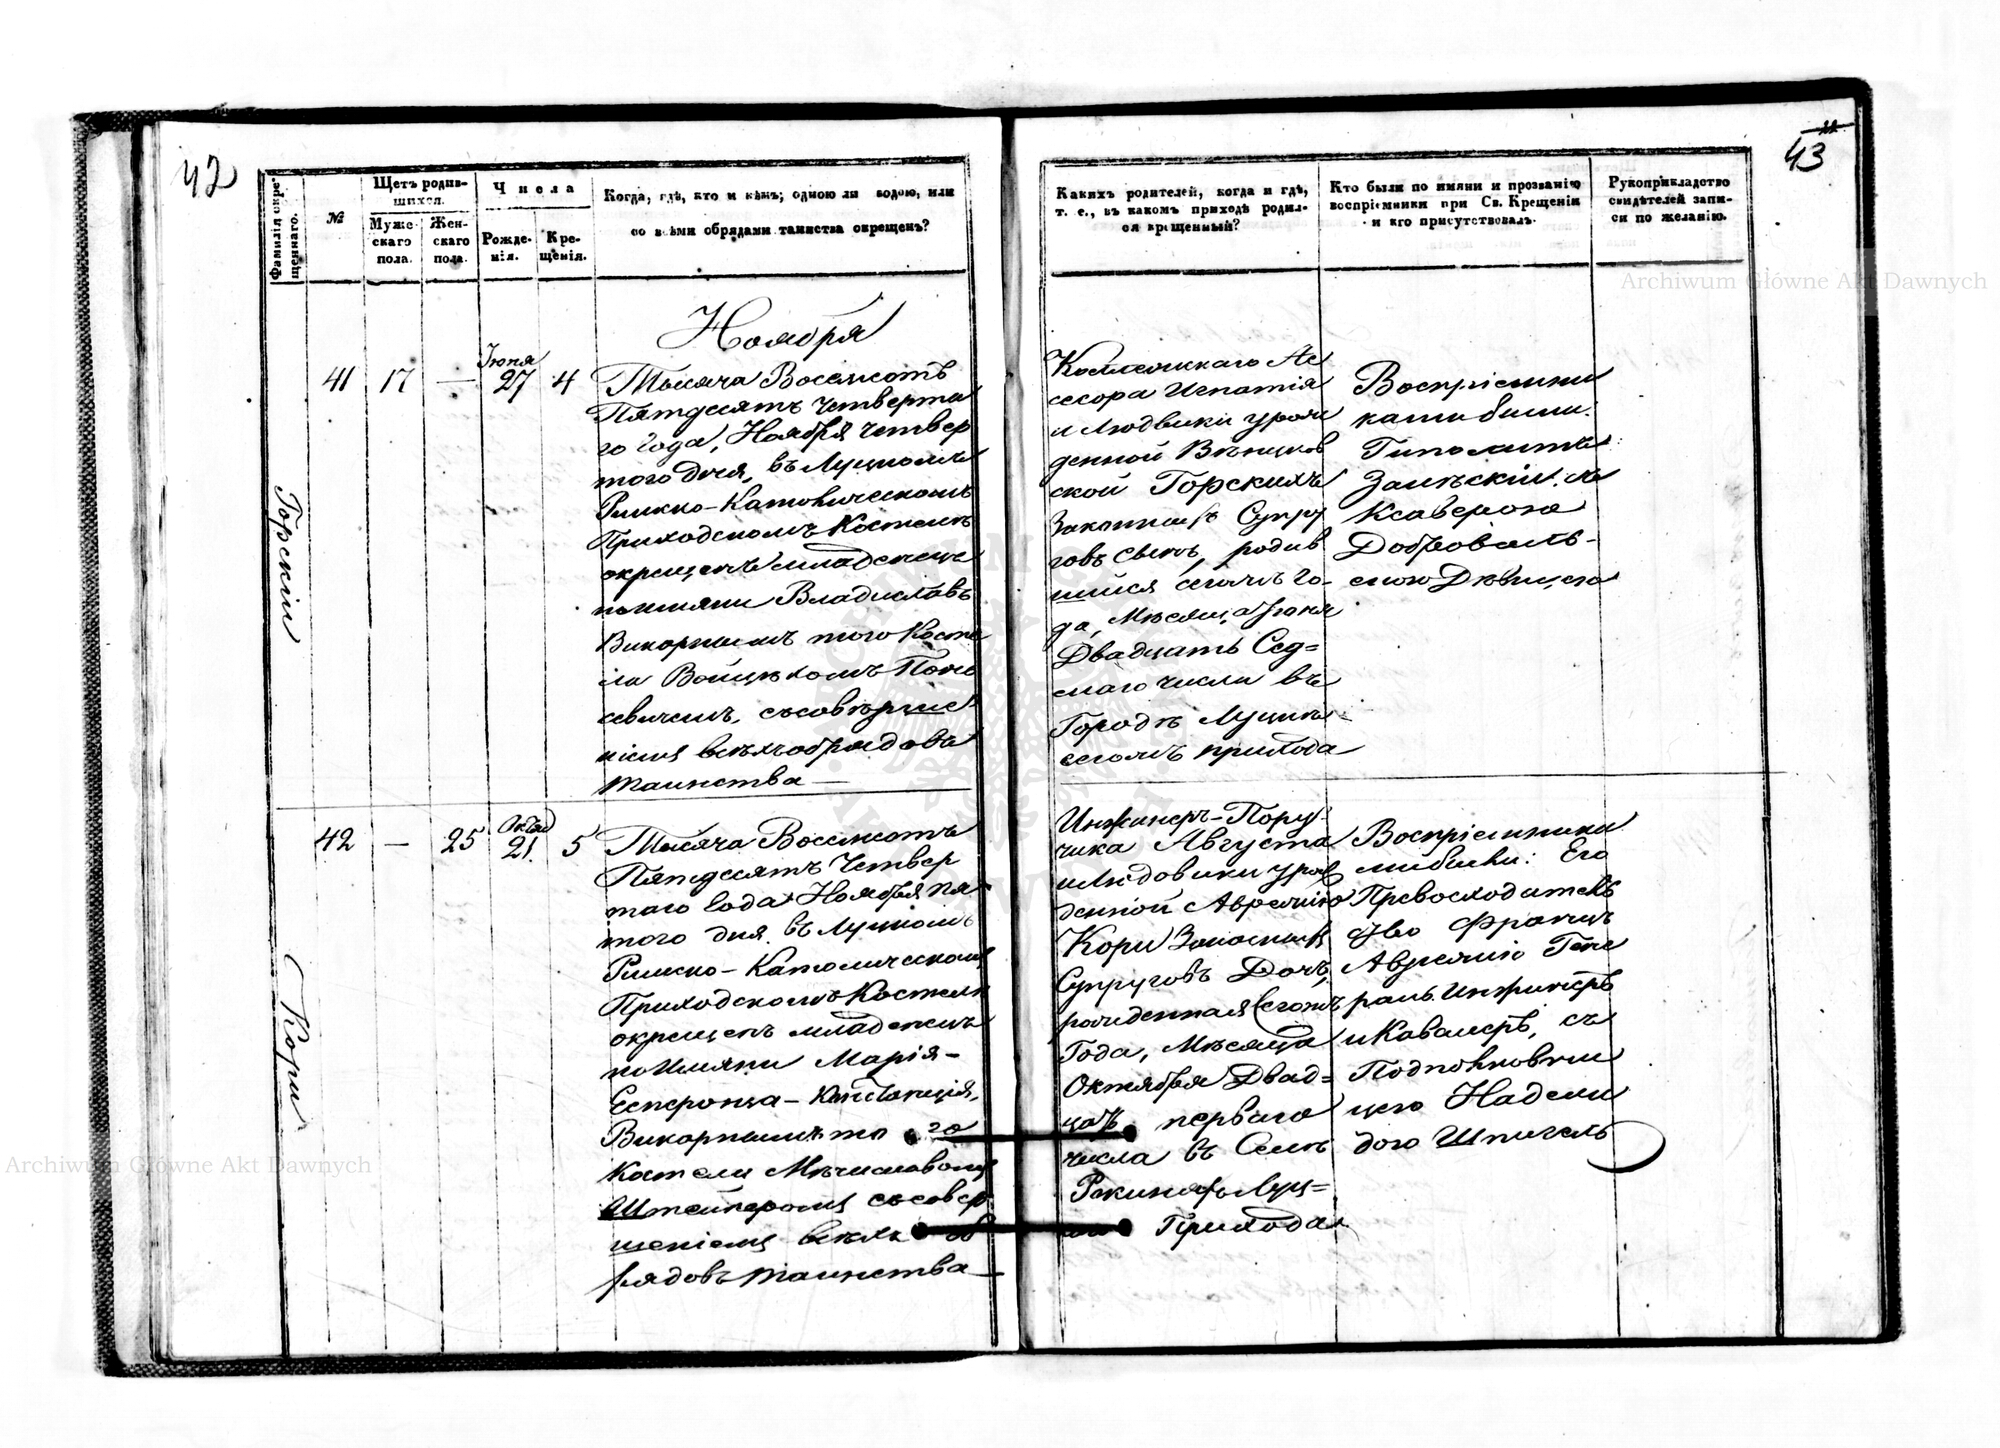 42
Фамилія окре-
щеннаго.
№
Щетъ родив-
шихся.
Муже-
скаго
пола.
Жен-
скаго
пола.
Числа
Рожде-
нія.
Кре-
щенія.
Когда, гдѣ, кто и кѣмъ; одною ли водою, или
со всѣми обрядами таинства окрещенъ?
Ноября
Горскій
41 17 — Іюня 27 4
Тысяча Восемсотъ
Пятдесятъ Четверта
го Года, Ноября четвер
того Дня, въ Луцкомъ
Римско-Католическомъ
Приходскомъ Костелѣ
окрещенъ младенецъ
по имяни Владиславъ
Викорнымъ того Косте
ла Войцѣхомъ
съ соверше
ніемъ всѣхъ обрядовъ
таинства —
Кори
42 — 25 21 5
Тысяча Восемсотъ
Пятдесятъ Четвер
таго Года Ноября пя
того дня въ Луцкомъ
Римско-Католическомъ
Приходскомъ Костелѣ
окрещенъ младенецъ
по Имяни Марія-
Есперонца-Констанція,
Викорнымъ то го
Костела Мѣчиславомъ
Штейнеромъ съ совер
шеніемъ всѣхъ об
рядовъ таинства —
43
Какихъ родителей, когда и гдѣ,
т. е., въ какомъ приходѣ родил-
ся крещенный?
Кто были по имяни и прозванію
воспріемники при Св. Крещеніи
и кто присутствовалъ.
Рукоприкладство
свидѣтелей запи-
си по желанію.
Коллежскаго Ас
сесора Игнатія
и Людвики урож
денной Вѣнцков
ской Горскихъ
Законныхъ Супру
говъ сынъ, родив
шийся сегожъ го-
да, Мѣсяца Іюня
Двадцать Сед=
маго числа въ
Городѣ Луцкѣ
сегожъ прихода
Воспріемни
ками были:
Гиполитъ
Залѣскій съ
Ксаверою
Добровольс-
кою Дѣвицею
Инженеръ-Пору-
чика Августа
и Людовики урож
денной Аврелію
Кори Законныхъ
Супруговъ Дочь,
рожденная сегожъ
Года, Мѣсяца
Октября Двад=
цать перваго
числа въ Селѣ
Рокиняхъ Луц=
Прихода
Воспріемника
ми были: Его
Превосходитель
ство Францъ
Аврелію Гене
ралъ Инженеръ
и Кавалеръ, съ
Подполковни
цею
Шпигель
Archiwum Główne Akt Dawnych
Archiwum Główne Akt Dawnych